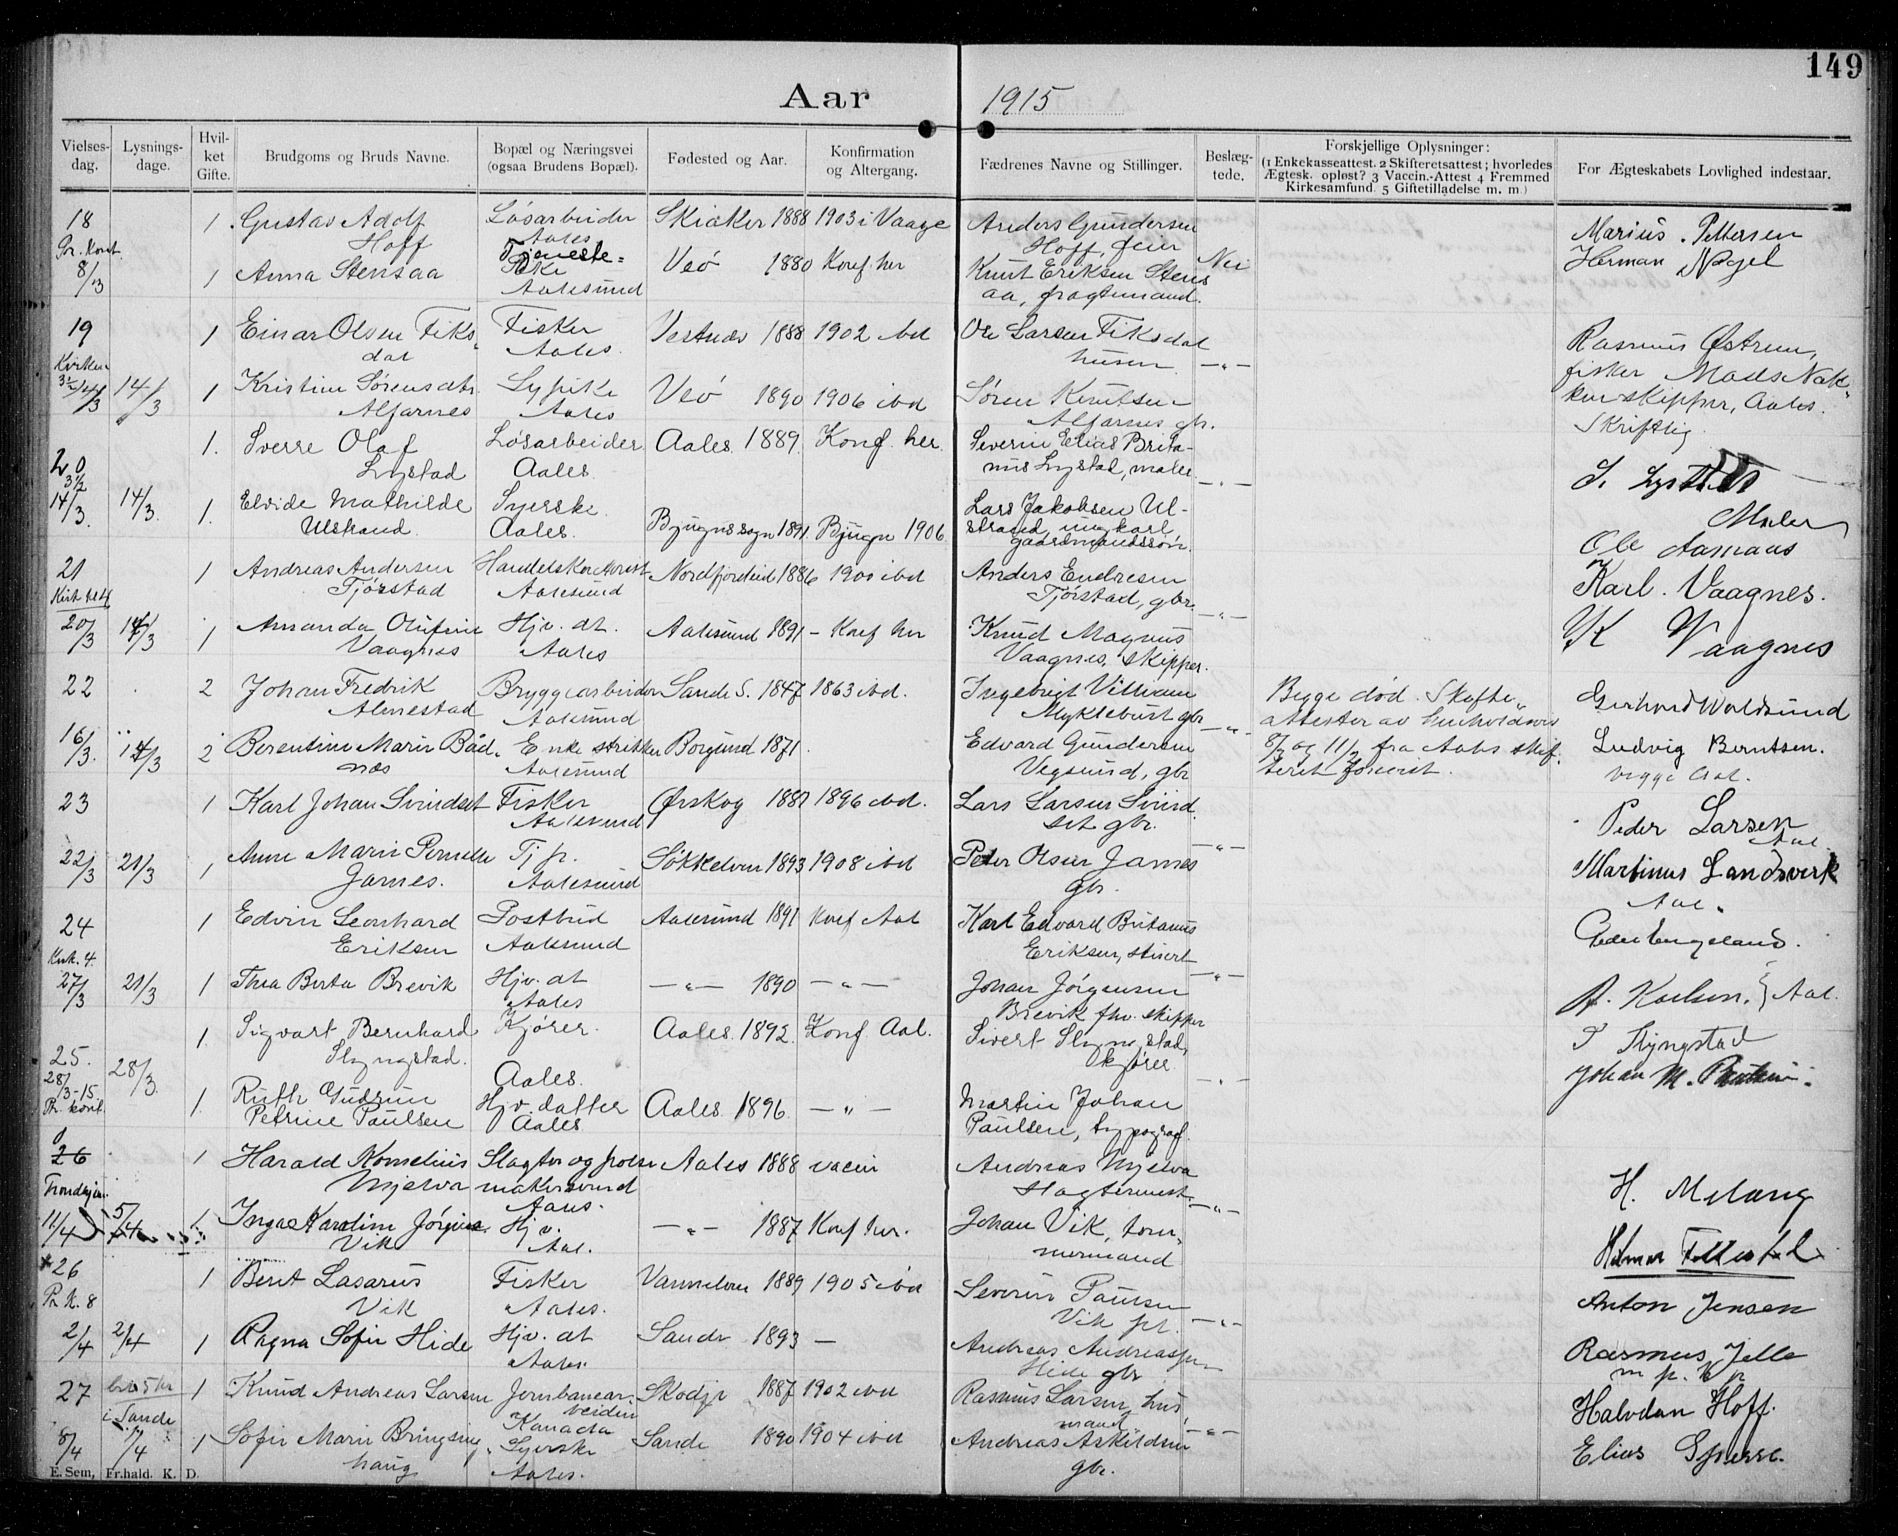 149
Aar 1915
Vielses-dag. Lysnings-dage. Hvil-ket Gifte. Brudgoms og Bruds Navne. Bopæl og Næringsvei (ogsaa Brudens Bopæl). Fødested og Aar. Konfirmation og Altergang. Fædrenes Navne og Stillinger. Beslæg-tede. Forskjellige Oplysninger: (1 Enkekasseattest. 2 Skifteretsattest; hvorledes Ægtesk. opløst? 3 Vaccin.-Attest 4 Fremmed Kirkesamfund. 5 Giftetilladelse m. m.) For Ægteskabets Lovlighed indestaar.
18 1 Gustav Adolf Løsarbeider Skiaker 1888 1903 i Vaage Anders Gundersen Marius Pettersen
Hoff Aales Hoff, Herman Nagel
8/3 1 Anna Stensaa Tjeneste= Veö 1880 Konf. her Knut Eriksen Stens Nei
Aalesund aa, fragtemand.
19 1 Einar Olsen Fiks Fisker Vestnes 1888 1902 ibd Ole Larsen Fiksdal Rasmus Østrem,
dal Aales. husm. fisker Mads Nak-
14/3 1 Kristine Sørensdtr. Sypike Veö 1890 1906 ibd Søren Knutsen ken skipper, Aales.
Alfarnes Aales Alfarnes gbr. Skriftlig
20 1. Sverre Olaf Løsarbeider Aales 1889. Konf. her. Severin Elias Brita-
3½ Lystad Aales nus Lystad, maler
14/3. 14/3. 1. Elvide Mathilde Syerske Bjugns sogn 1891. Bjugn 1906 Lars Jakobsen Ul- Maler
Ulstrand. Aales. strand, ungkarl gaardmandssøn.
21 1 Andreas Andersen Nordfjordeid 1886 1901 ibd Anders Endresen Karl. Vaagnes.
Tjørstad Aalesund Tjørstad, gbr.
20/3 14/3 1 Amanda Olufine Hjv. dt. Aalesund 1891 - Konf her Knud Magnus K Vaagnes
Vaagnes Aales Vaagnes, skipper.
22 2 Johan Fredrik Bryggearbeider Sande S. 1847 1863 ibd. Ingebrigt Villum Begge död. Skifte
Almestad Aalesund Myklebust gbr attester av henholdsvis
16/3. 14/3 2 Berentine Marie Båd- Enke strikker Borgund 1871. Edvard Gundersen fra Aales skif. Ludvig Berntsen.
næs Aalesund Vegsund, gbr teret forevist. begge Aal.
23 1 Karl Johan Svindset Fisker Ørskog 1881 1896 ibd. Lars Larsen Svind Peder Larsen
Aalesund set gbr. Aal.
22/3 21/3 1 Anne Marie Pernelle Tj p. Søkkelven 1893 1908 ibd Peter Olsen Jarnes Martinus Landsverk
Jarnes. Aalesund gbr. Aal.
24 1 Edvin Leonhard Postbud Aalesund 1891 Konf Aal Karl Edvard Britanus
Eriksen Aalesund Eriksen, stuert
27/3 21/3 1 Thea Berta Brevik Hjv. dt — „ — 1890 — „ — Johan Jørgensen Aal.
Aales Brevik fhv. skipper
1 Sigvart Bernhard Kjører. Aales 1892. Konf. Aal. Sivert Slyngstad, Slyngstad
25. 28/3 Slyngstad. Aales. kjører Johan M.
28/3-15. 1. Ruth Gudrun Hjv. datter Aales. 1896. — „ — Martin Johan
Petrine Paulsen Aales. Paulsen, typograf.
26 1 Harald Kornelius Slagter og pølse Aales 1888 vacin Andreas Mjelva H. Melang
Mjelva makersvend Slagtermest.
11/4 5/4 1 Inga Karoline Jørgine Hjv. — „ — 1887 Konf her. Johan Vik, töm-
Vik Aal. mermand
26 1 Berit Lasarus Fisker Vannelven 1889 1905 ibd Severin Paulsen Anton Jensen
Vik Aales. Vik
2/4 2/4 1 Ragna Sofie Hide Hjv. dt Sande 1893 — Andreas Andreassen Rasmus Jelle
Aales. Hide gbr m. p.
27 1 Knud Andreas Larsen Jernbanear- Skodje 1887 1902 ibd Rasmus Larsen, hus- Halvdan Hoff.
i Sande beider Kanada mand
8/4 7/4 1 Sofie Marie Bringsing Syerske Sande 1890 1904 ibd Andreas Askildsen Elias Sperre.
haug Aales. gbr.
E. Sem, Fr.hald. K. D.